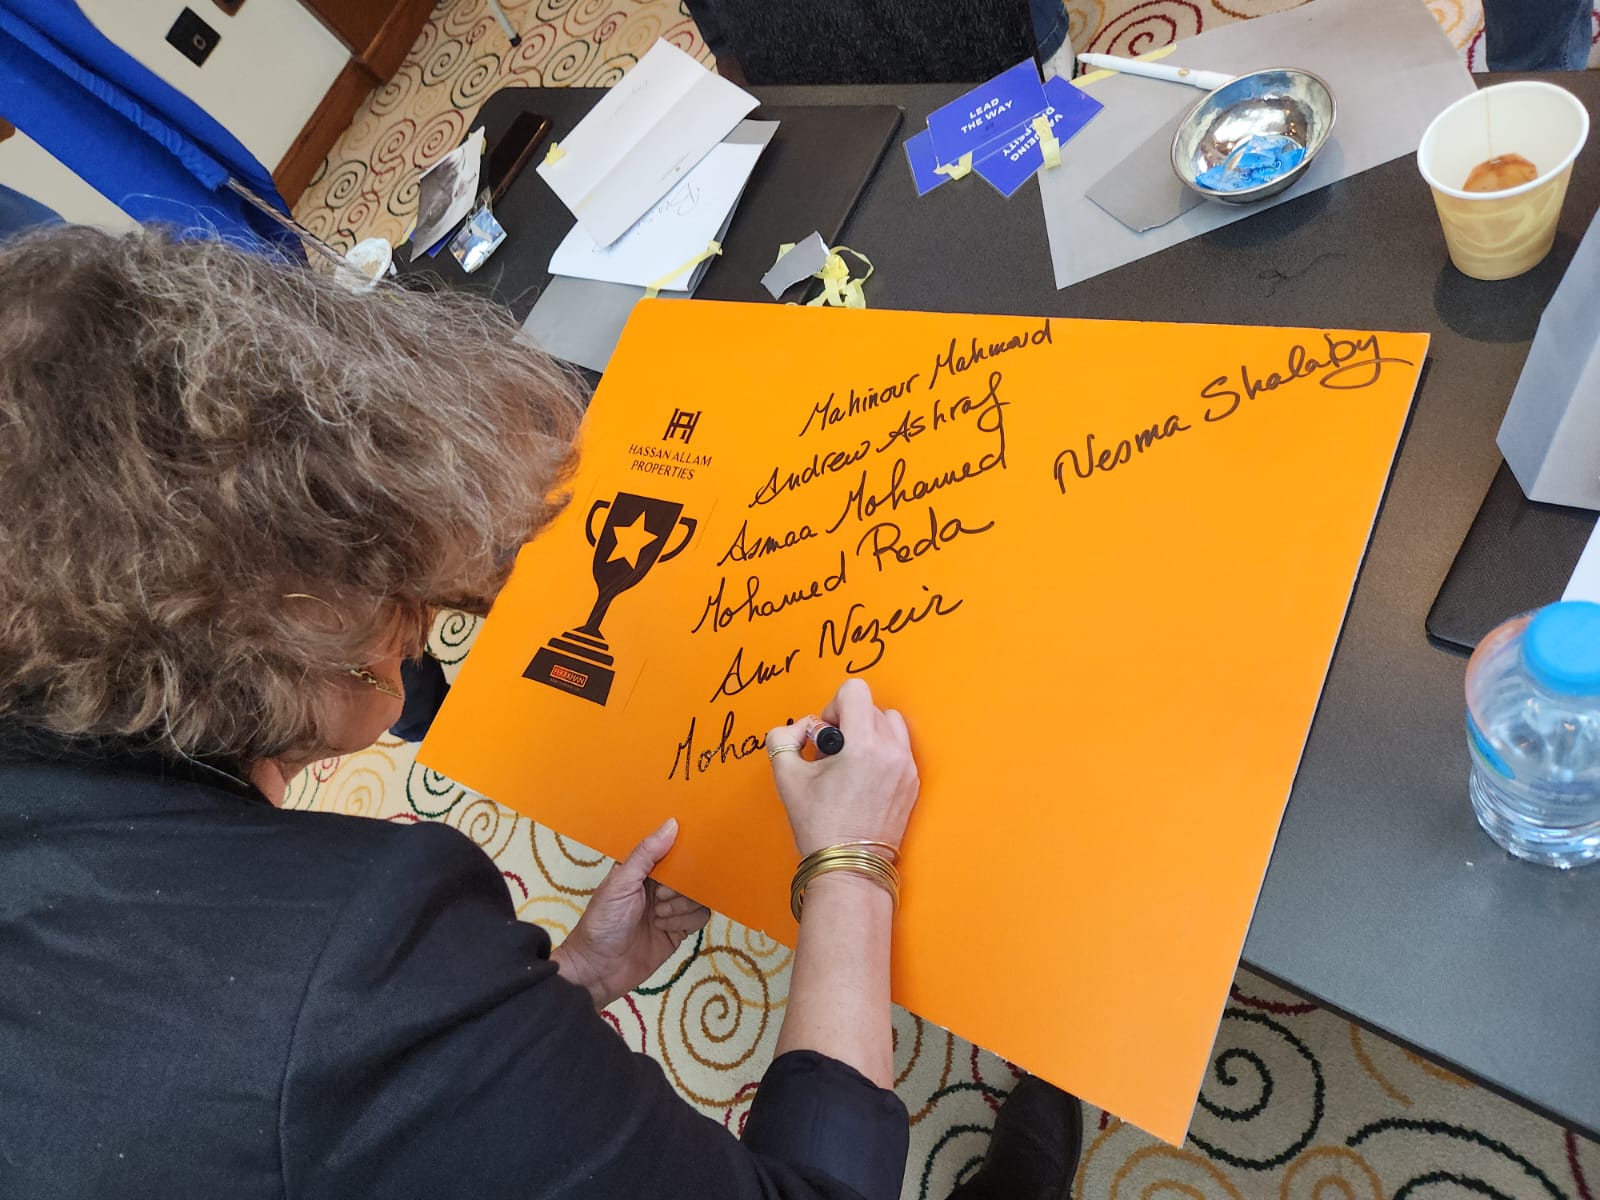 LEAD
THE WAY
HASSAN ALLAM
PROPERTIES
Mahinour Mahmoud
Andrew Ashraf
Asmaa Mohamed
Mohamed Reda
Amr Nazeir
Moha
Nesma Shalaby